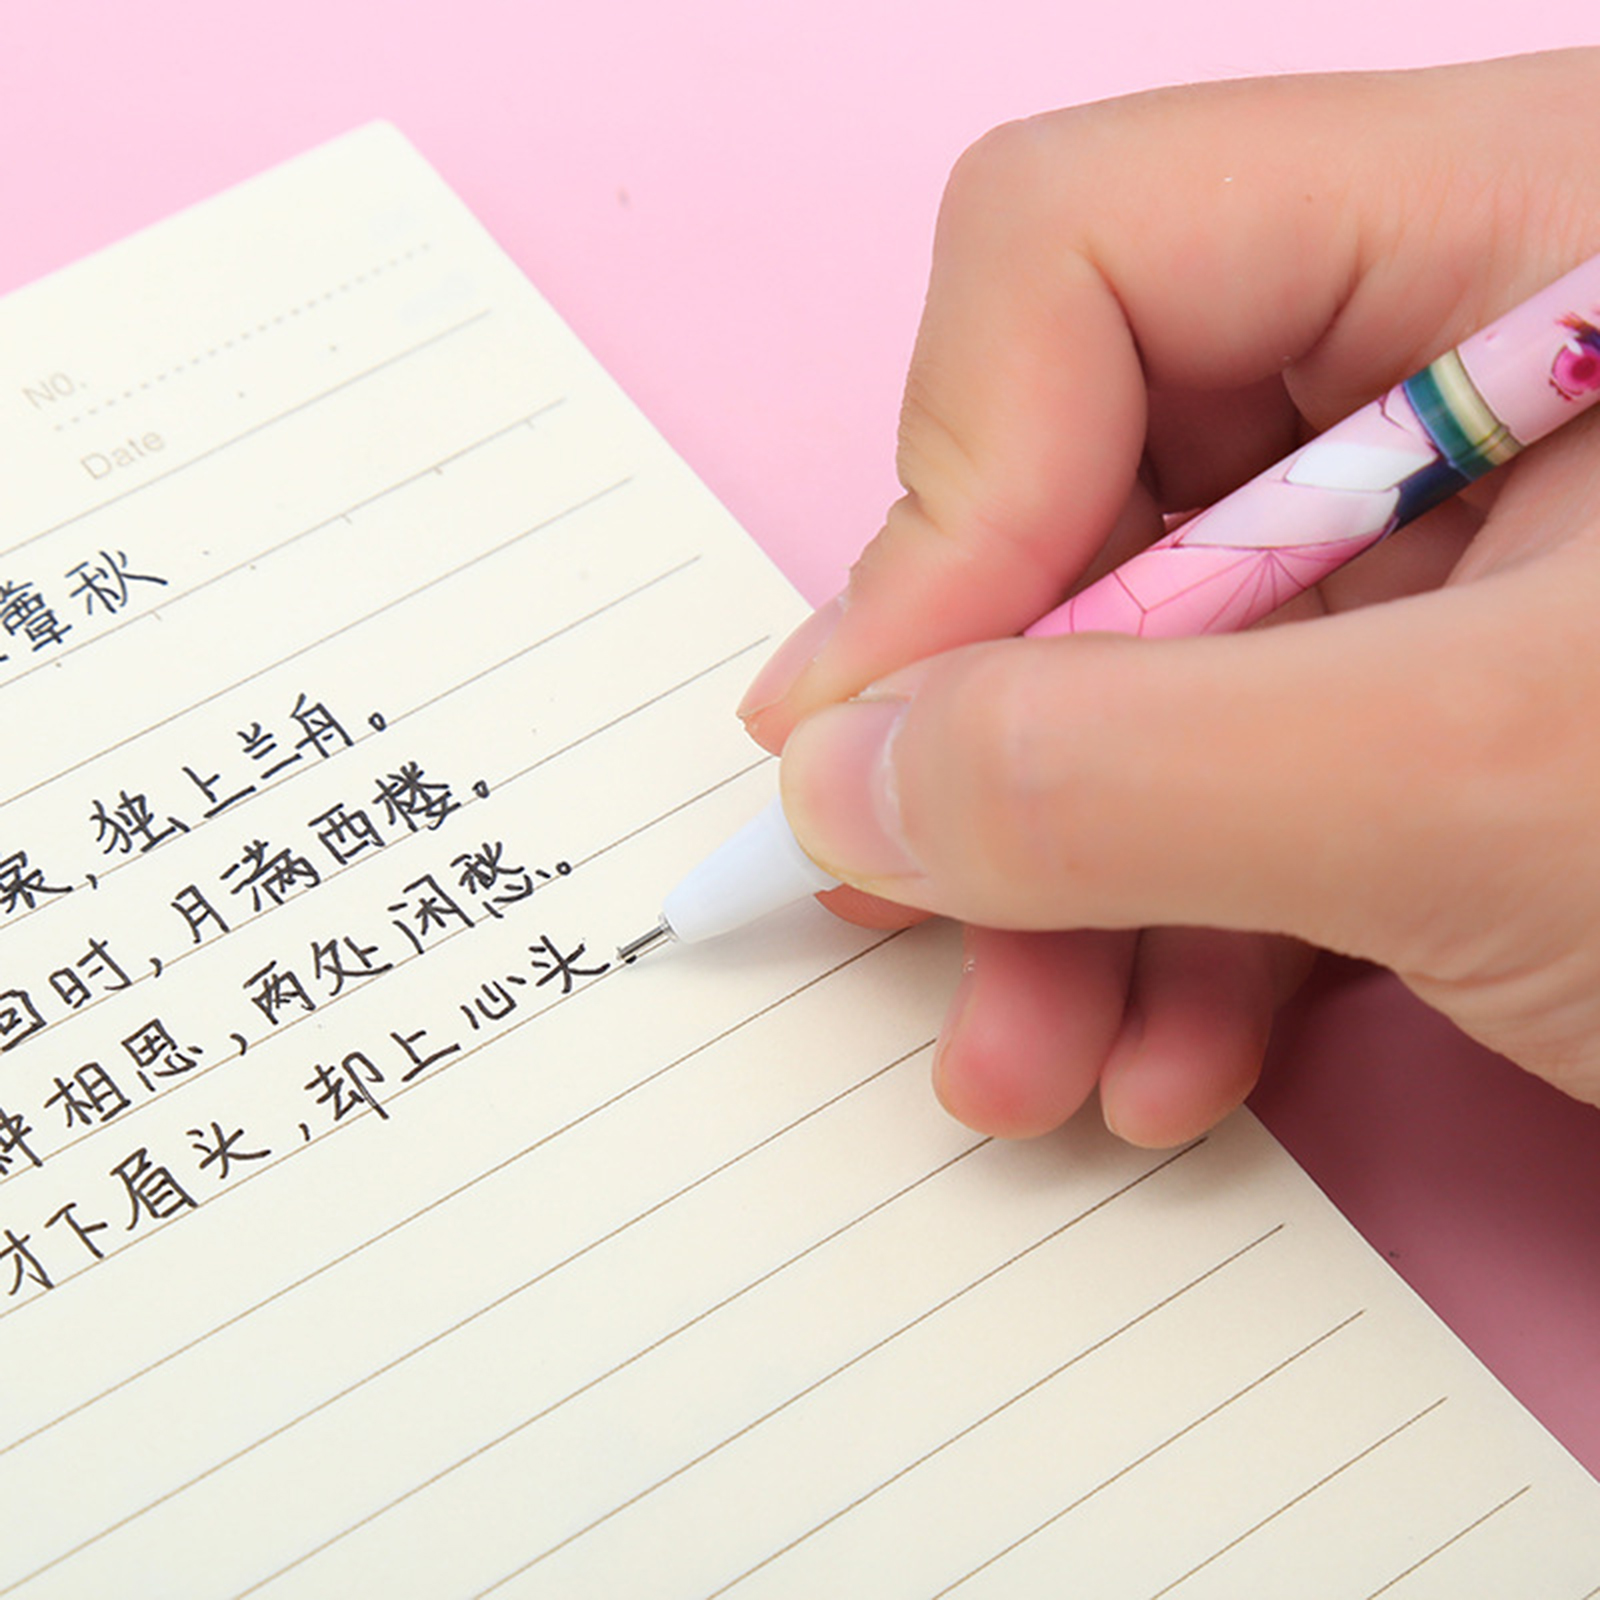 NO.
Date
簟秋
裳，独上兰舟。
回时，月满西楼。
种相思，两处闲愁。
才下眉头，却上心头